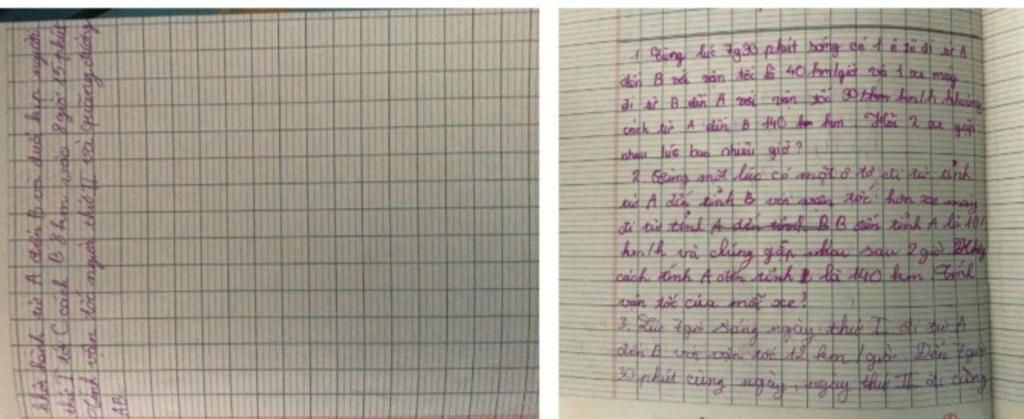 1. Cùng lúc 7g30 phút sáng có 1 ô tô đi từ A
đến B với vận tốc là 40 km/giờ và 1 xe máy
đi từ B đến A với vận tốc 30 km/h khoảng
cách từ A đến B 140 km. Hỏi 2 xe gặp
nhau lúc bao nhiêu giờ?
2. Cùng một lúc có một ô tô đi từ tỉnh
từ A đến tỉnh B với vận tốc hơn xe máy
đi từ tỉnh B đến tỉnh A là 10
km/h và chúng gặp nhau sau 2 giờ.
cách tỉnh A đến tỉnh B là 140 km. Tính
vận tốc của mỗi xe?
3. Lúc 7 giờ sáng người thứ I đi từ A
đến B với vận tốc 12 km/giờ. Đến 7 giờ
30 phút cùng ngày, người thứ II đi cũng
khởi hành từ A đến B và đuổi kịp người
thứ I tại C cách B 8 km vào 8 giờ 15 phút
Tính vận tốc người thứ II và quãng đường
AB.